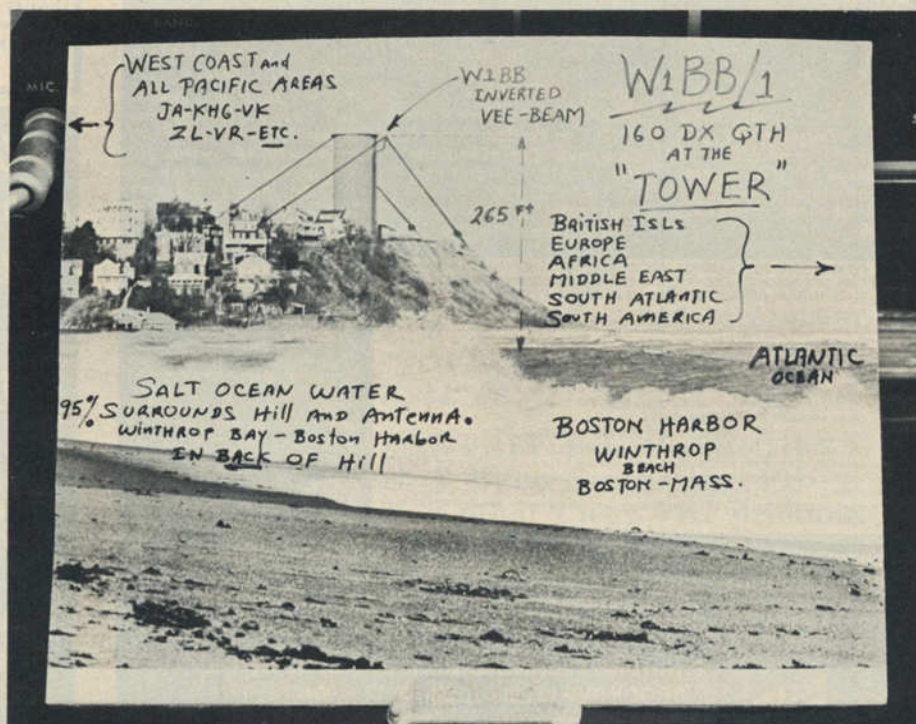 MIC.
WEST COAST and
ALL PACIFIC AREAS
JA-KH6-VK
ZL-VR-ETC.
W1BB
INVERTED
VEE-BEAM
W1BB/1
160 DX QTH
AT THE
"TOWER"
265 Ft
BRITISH ISLs
EUROPE
AFRICA
MIDDLE EAST
SOUTH ATLANTIC
SOUTH AMERICA
ATLANTIC
OCEAN
SALT OCEAN WATER
95% SURROUNDS Hill AND ANTENNA.
WINTHROP BAY - BOSTON HARBOR
IN BACK OF Hill
BOSTON HARBOR
WINTHROP
BEACH
BOSTON-MASS.